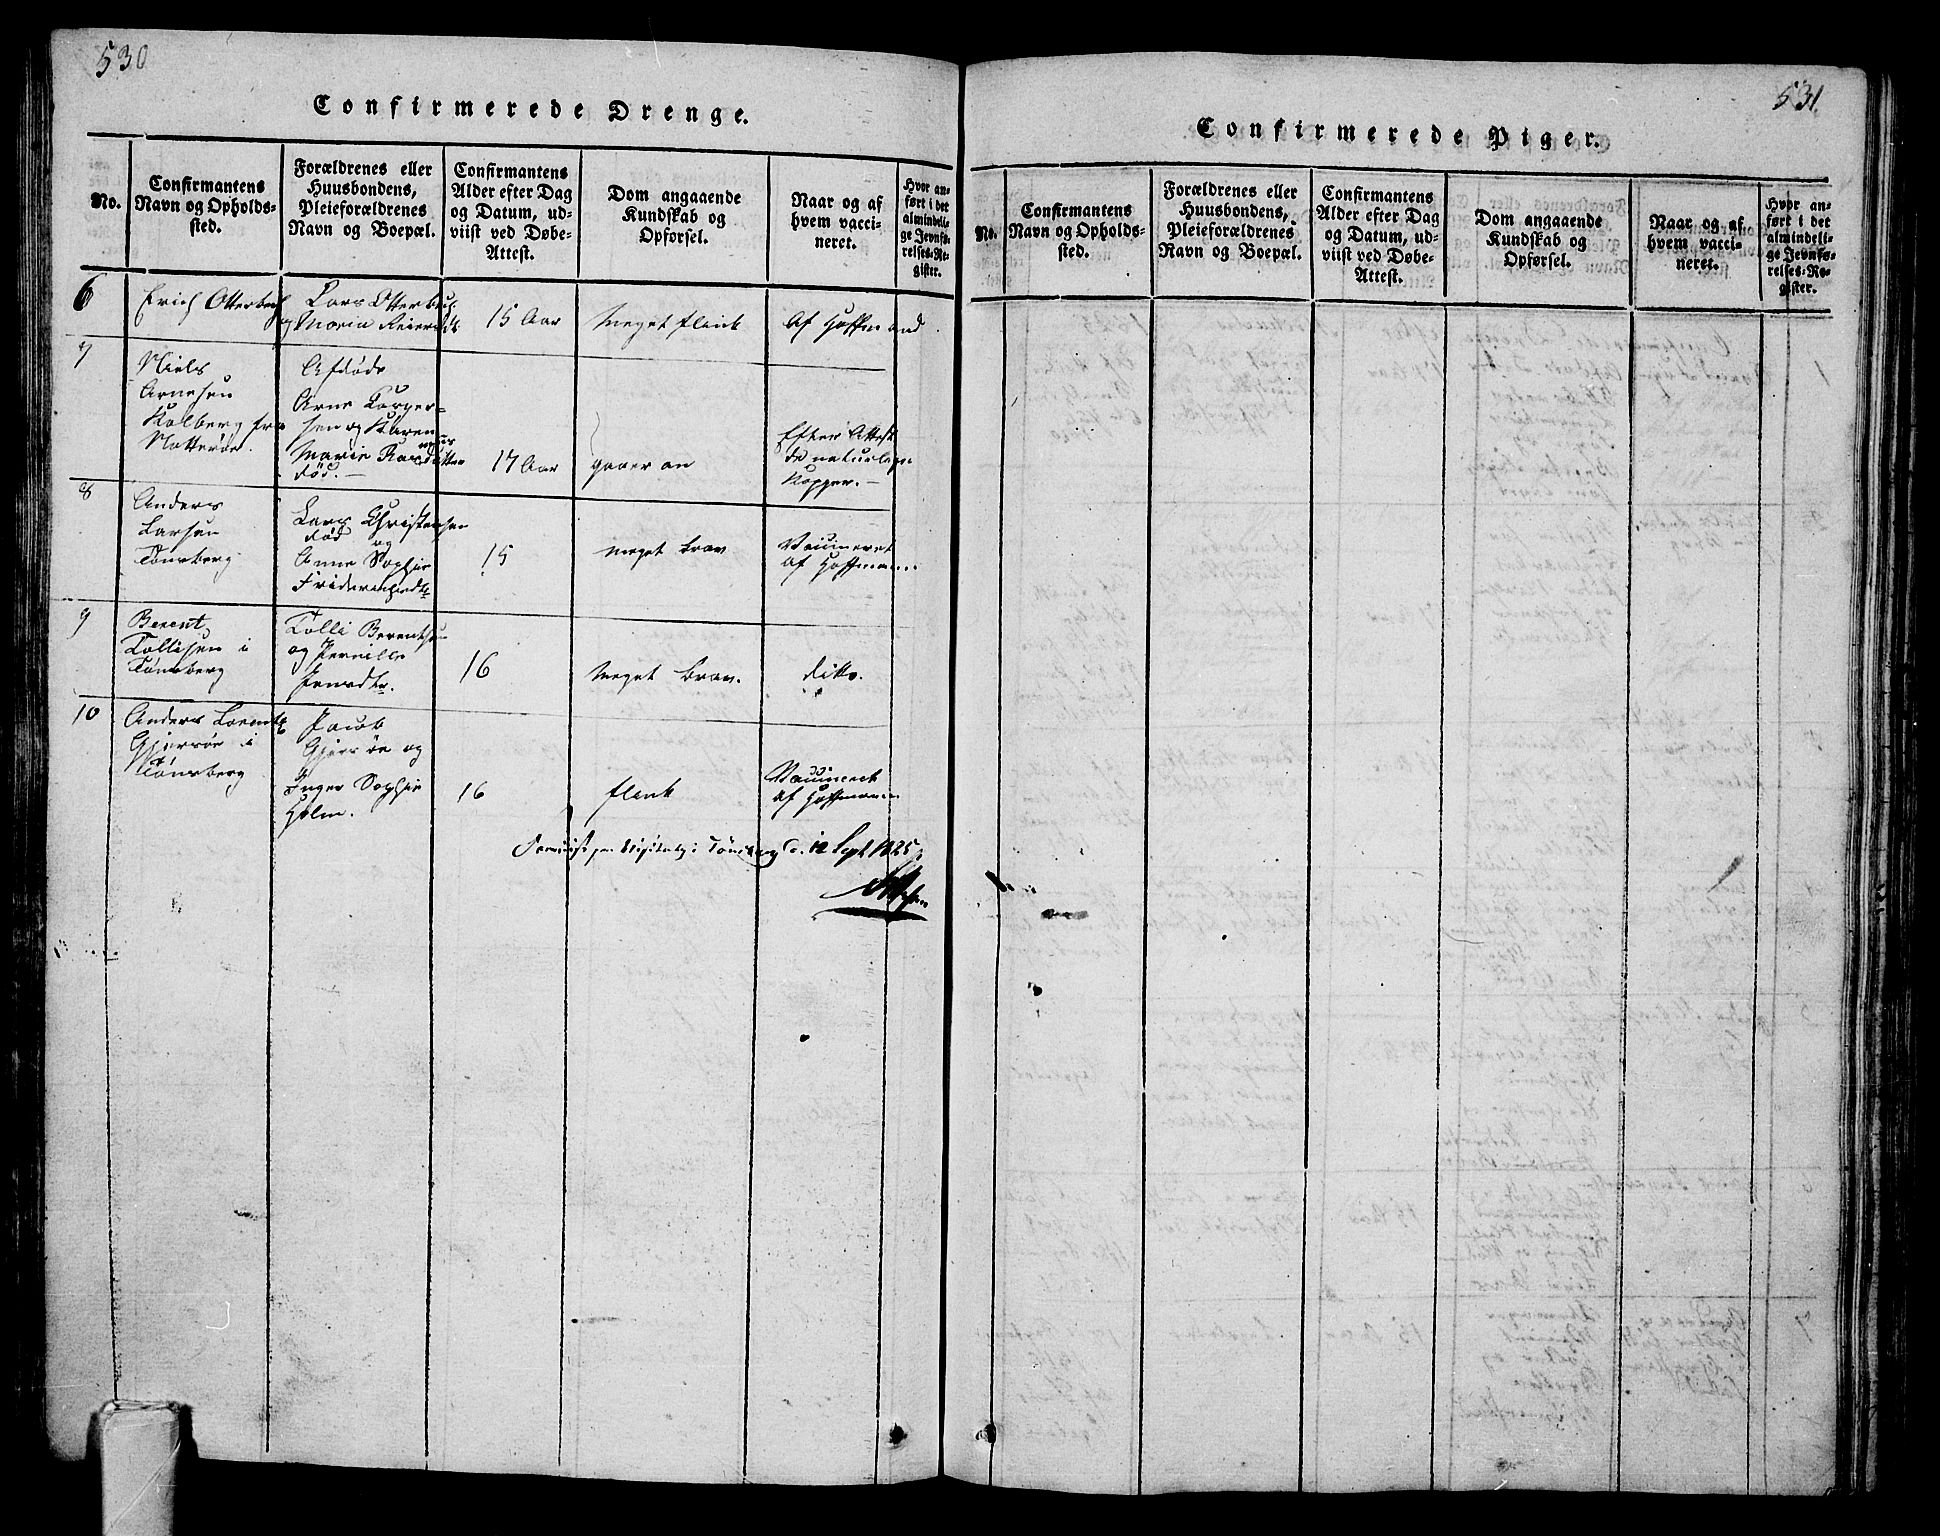 530
Confirmerede Drenge.
No.
Confirmantens
Navn og Opholds-
sted.
Forældrenes eller
Huusbondens,
Pleieforældrenes
Navn og Boepæl.
Confirmantens
Alder efter Dag
og Datum, ud-
viist ved Døbe-
Attest.
Dom angaaende
Kundskab og
Opførsel.
Naar og af
hvem vacci-
neret.
Hvor an-
ført i det
almindeli-
ge Jevnfø-
relses-Re-
gister.
6
Erich Otterbech
Lars Otterbech
og Maria Reiersdtr.
15 Aar
Meget flink
Af Hoffmand
7
Niels
Arnesen
Kolberg fra
Nøtterøe.
Afdøde
Arne Torger-
sen og Karen
Marie
død.-
17 Aar
gaaer an
Efter Attest
de naturlige
Kopper.-
8
Anders
Larsen
Tønsberg
Lars Christensen
død og
Anne Sophie
15
meget brav
Vaccineret
af Hoffmann
9
Berent
Tollisen i
Tønsberg
Tolli Berentsen
og Pernille
Jensdtr.
16
Meget brav.
ditto.
10
Anders Lorentz
Gjersøe i
Tønsberg
Jacob
Gjersøe og
Inger Sophie
Holm.
16
flink
Vaccineret
af Hoffmann
Fremviist paa Visitatz i Tønsberg d. 12 Sept 1825
531.
Confirmerede Piger.
No.
Confirmantens
Navn og Opholds-
sted.
Forældrenes eller
Huusbondens,
Pleieforældrenes
Navn og Boepæl.
Confirmantens
Alder efter Dag
og Datum, ud-
viist ved Døbe-
Attest.
Dom angaaende
Kundskab og
Opførsel.
Naar og af
hvem vacci-
neret.
Hvor an-
ført i det
almindeli-
ge Jevnfø-
relses-Re-
gister.